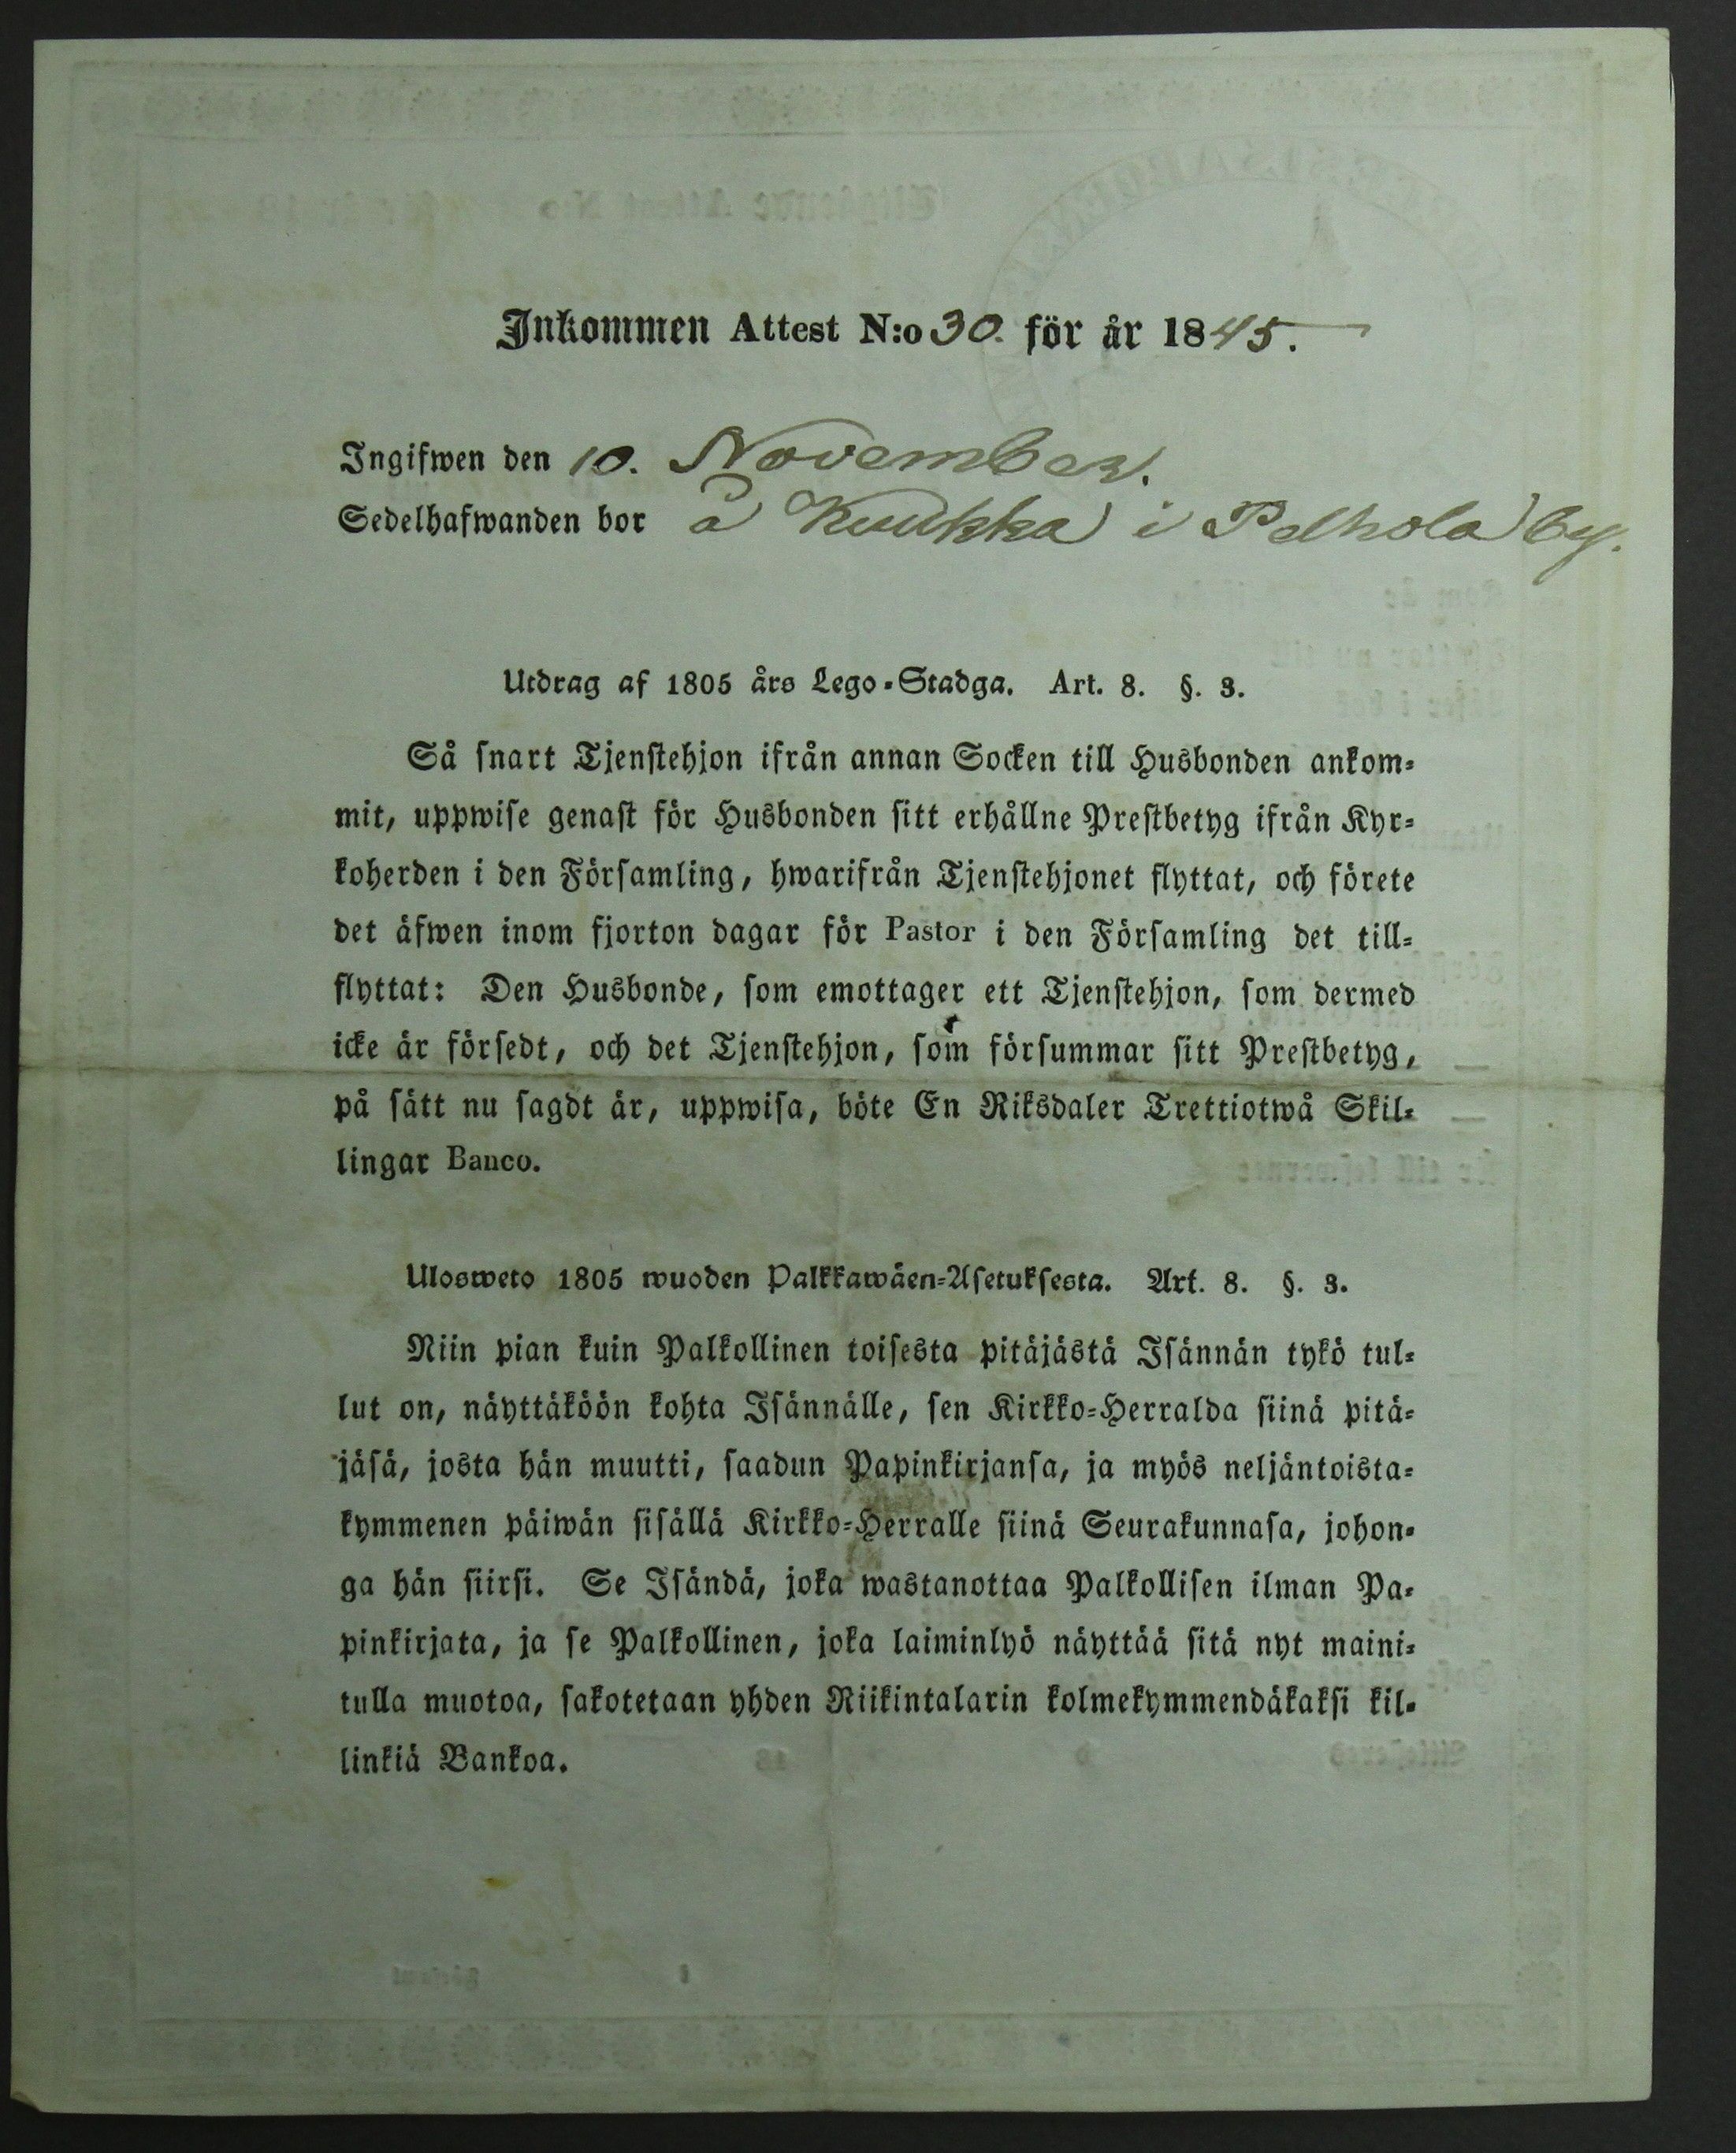 Inkommen Attest N:o 30. för år 1845.
Ingifwen den 10. November.
Sedelhafwanden bor å Kuukka i Pelhola by.
Utdrag af 1805 års Lego-Stadga. Art. 8. §. 3.
Så snart Tjenstehjon ifrån annan Socken till Husbonden ankom-
mit, uppwise genast för Husbonden sitt erhållne Prestbetyg ifrån Kyr-
koherden i den Församling, hwarifrån Tjenstehjonet flyttat, och förete
det äfwen inom fjorton dagar för Pastor i den Församling det till-
flyttat: Den Husbonde, som emottager ett Tjenstehjon, som dermed
icke är försedt, och det Tjenstehjon, som försummar sitt Prestbetyg,
på sätt nu sagdt är, uppwisa, böte En Riksdaler Trettiotwå Skil-
lingar Banco.
Ulosweto 1805 wuoden Palkkawäen-Asetuksesta. Art. 8. §. 3.
Niin pian kuin Palkollinen toisesta pitäjästä Isännän tykö tul-
lut on, näyttäköön kohta Isännälle, sen Kirkko-Herralda siinä pitä-
jäsä, josta hän muutti, saadun Papinkirjansa, ja myös neljäntoista-
kymmenen päiwän sisällä Kirkko-Herralle siinä Seurakunnasa, johon-
ga hän siirsi. Se Isändä, joka wastanottaa Palkollisen ilman Pa-
pinkirjata, ja se Palkollinen, joka laiminlyö näyttää sitä nyt maini-
tulla muotoa, sakotetaan yhden Riikintalarin kolmekymmendäkaksi kil-
linkiä Bankoa.